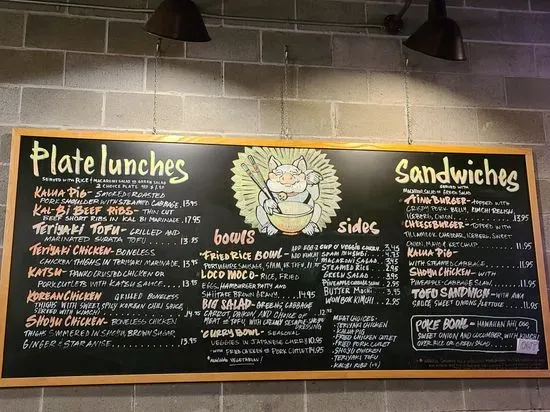 Plate lunches
SERVED WITH RICE & MACARONI SALAD OR GREEN SALAD
2 CHOICE PLATE
KALUA PIG - SMOKED+ROASTED
PORK SHOULDER WITH STEAMED CABBAGE 13.95
KAL-BI BEEF RIBS - THIN CUT
BEEF SHORT RIBS IN KAL BI MARINADE. 17.95
TERIYAKI TOFU - GRILLED AND
MARINATED SURATA TOFU 13.75
TERIYAKI CHICKEN - BONELESS
CHICKEN THIGHS IN TERIYAKI MARINADE. 13.95
KATSU - PANKO CRUSTED CHICKEN OR
PORK CUTLETS WITH KATSU SAUCE 13.95
KOREAN CHICKEN GRILLED BONELESS
THIGHS WITH SWEET SPICY KOREAN CHILI SAUCE
SERVED WITH KIMCHI 14.95
SHOYU CHICKEN - BONELESS CHICKEN
THIGHS SIMMERED IN SOY + BROWN SUGAR
GINGER + STAR ANISE 13.95
bowls
FRIED RICE BOWL
PORTUGUESE SAUSAGE, SPAM,
LOCO MOCO - RICE, FRIED
EGGS, HAMBURGER PATTY AND
SHIITAKE BROWN GRAVY. 14.95
BIG SALAD - GREENS, CABBAGE
CARROT, DAIKON, AND CHOICE OF
MEAT OR TOFU, WITH CREAMY SESAME GINGER
DRESSING
CURRY BOWL - SEASONAL
VEGGIES IN JAPANESE CURRY 10.95
WITH FRIED CHICKEN OR PORK CUTLET 14.95
sides
CUP O' VEGGIE CURRY 3.45
SPAM MUSUBI
MACARONI SALAD
STEAMED RICE
GREEN SALAD
PINEAPPLE CABBAGE SLAW
BUTTER MOCHI
WON BOK KIMCHI
MEAT CHOICES -
TERIYAKI CHICKEN
KALUA PIG
FRIED CHICKEN CUTLET
FRIED PORK CUTLET
SHOYU CHICKEN
TERIYAKI TOFU
KALBI RIBS
Sandwiches
SERVED WITH
MACARONI SALAD OR GREEN SALAD
AINA BURGER - TOPPED WITH
CRISPY PORK BELLY, KIMCHI RELISH,
ICEBERG, ONION 13.95
CHEESEBURGER - TOPPED WITH
TILLAMOOK CHEDDAR, ICEBERG, SWEET
ONION, MAYO & KETCHUP 11.95
KALUA PIG -
WITH STEAMED CABBAGE 11.95
SHOYU CHICKEN - WITH
PINEAPPLE-CABBAGE SLAW. 11.95
TOFU SANDWICH - WITH AINA
SAUCE, SWEET ONIONS, LETTUCE 11.95
POKE BOWL - HAWAIIAN AHI, EGG,
SWEET ONION AND CUCUMBER, WITH KIMCHI
OVER RICE OR GREEN SALAD